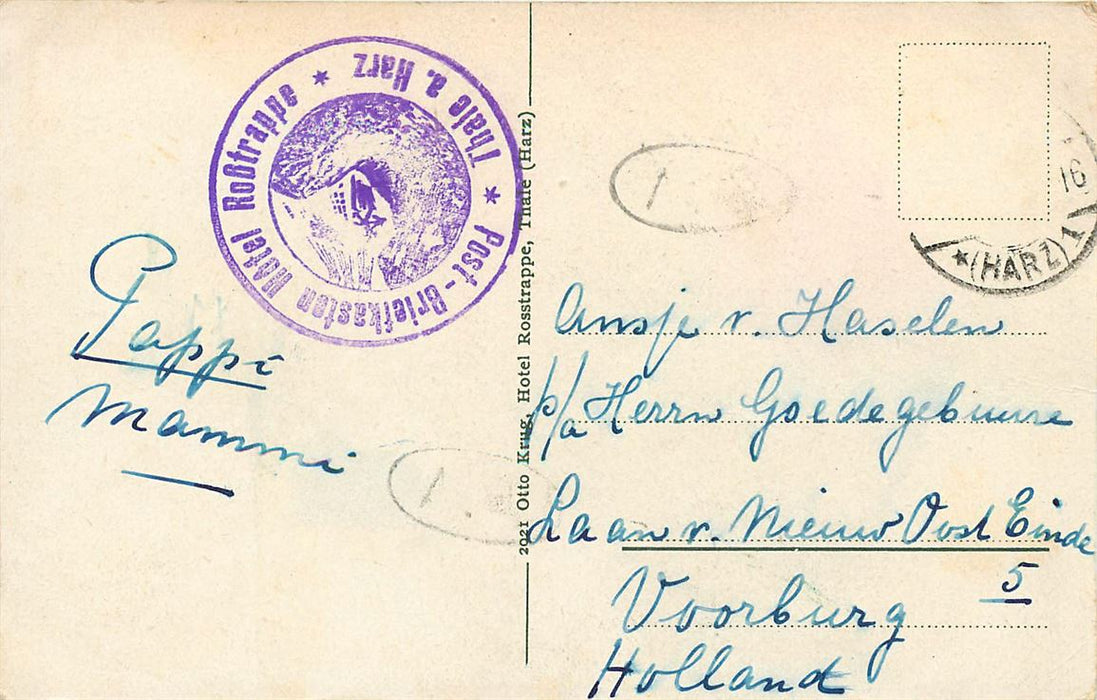 Post-Briefkasten Hotel Roßtrappe * Thale a. Harz *
Pappi
Mammi
2021 Otto Krug, Hotel Rosstrappe, Thale (Harz)
16
*(HARZ)1
Ansje v. Haselen
p/a Herrn Goedegebuure
Laan v. Nieuw Oost Einde
5
Voorburg
Holland